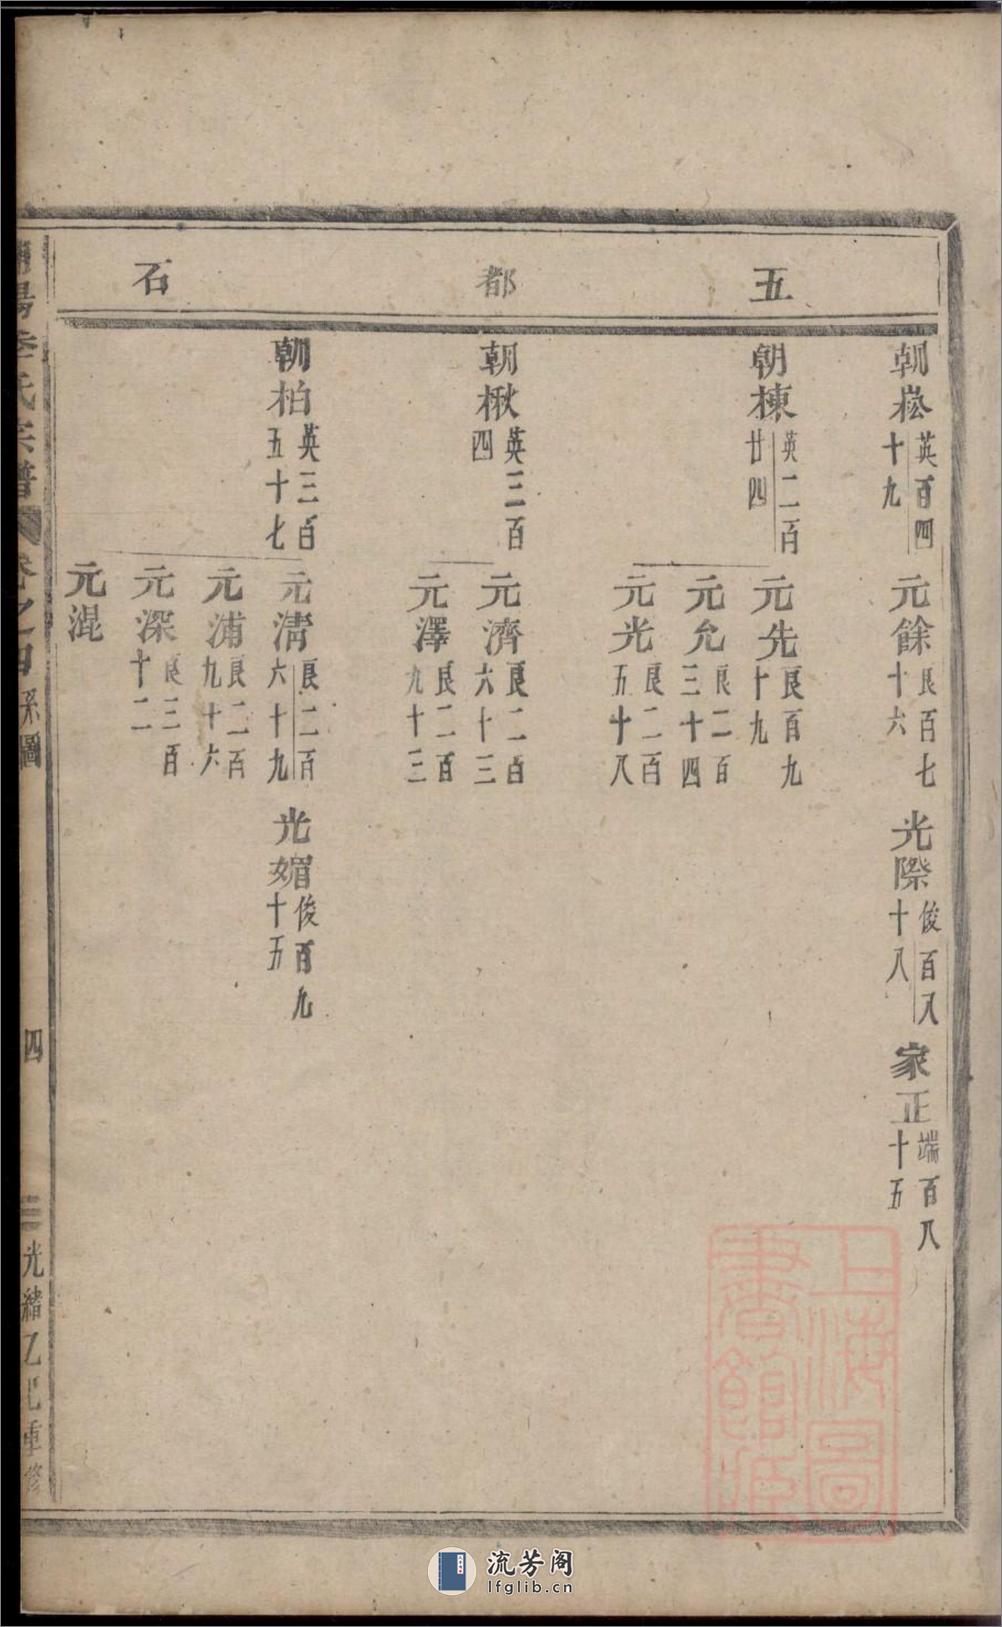 五都石
朝崧 英百四十九
元餘 良百七十六
光際 俊百八十八
家正 端百八十五
朝棟 英二百廿四
元先 良百九十九
元允 良二百三十四
元光 良二百五十八
朝楸 英三百四
元濟 良二百六十三
元澤 良二百九十三
朝柏 英三百五十七
元淸 良二百六十九
光媢 俊百九十五
元浦 良二百九十六
元深 良三百十二
元混
陽李氏宗譜 卷之四 系圖
四
光緒乙巳重修
上海圖書館藏
流芳阁
lfglib.cn